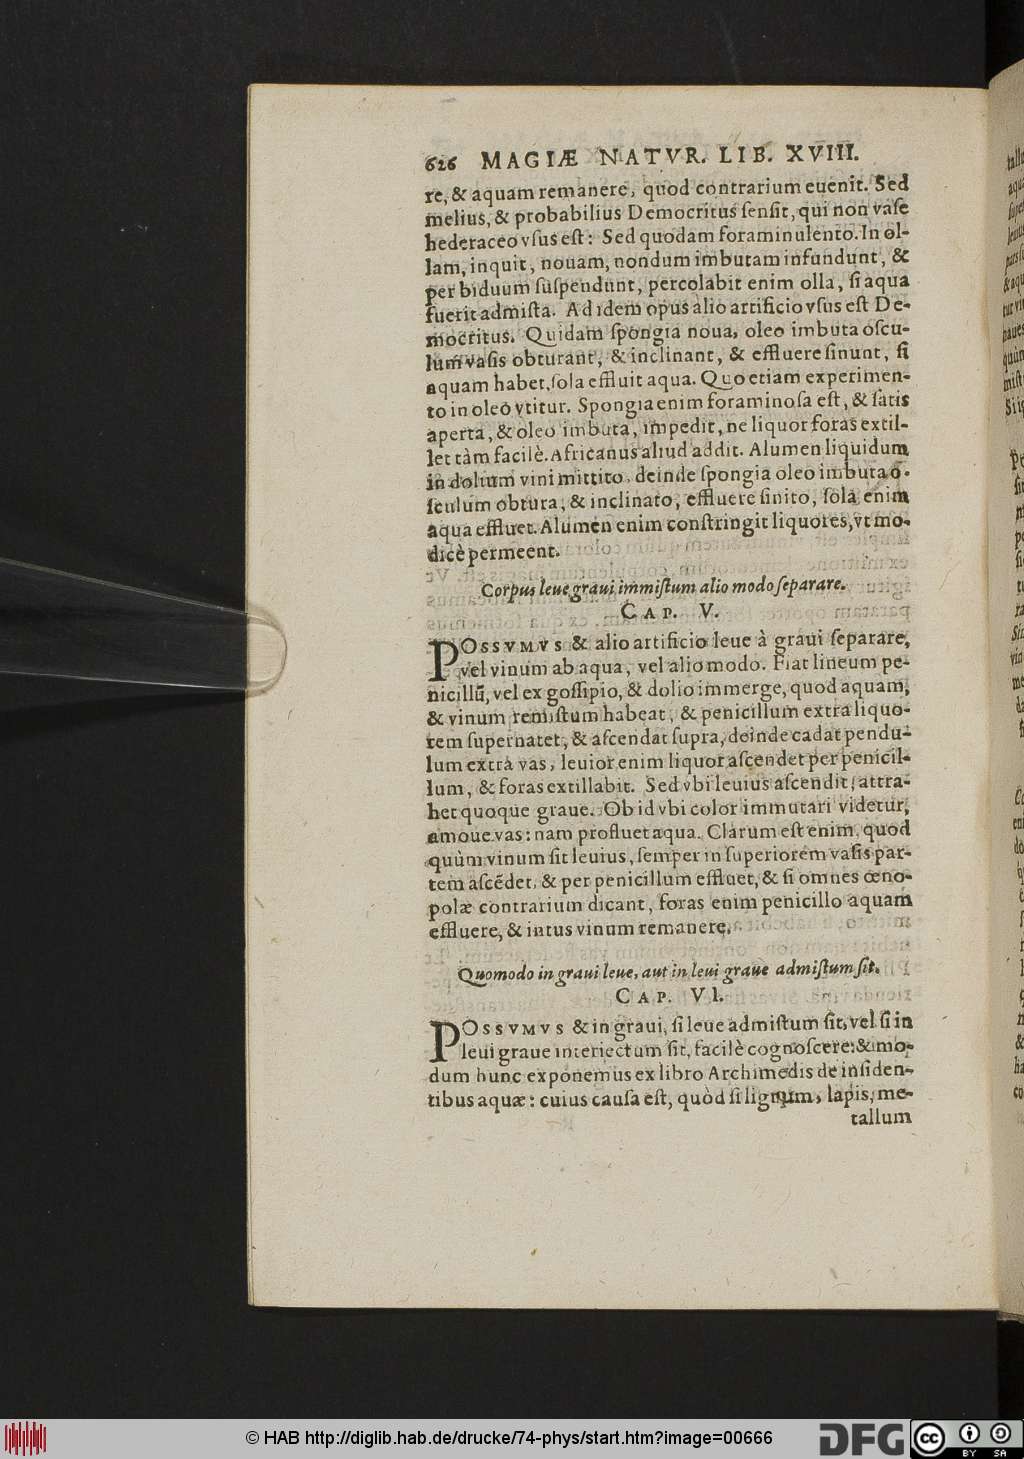 626 MAGIÆ NATVR. LIB. XVIII.
re, & aquam remanere, quod contrarium euenit. Sed
melius, & probabilius Democritus ſenſit, qui non vaſe
hederaceo vſus eſt: Sed quodam foraminulento. In ol-
lam, inquit, nouam, nondum imbutam infundunt, &
per biduum ſuſpendunt, percolabit enim olla, ſi aqua
fuerit admiſta. Ad idem opus alio artificio vſus eſt De-
mocritus. Quidam ſpongia noua, oleo imbuta oſcu-
lum vaſis obturant, & inclinant, & effluere ſinunt, ſi
aquam habet, ſola effluit aqua. Quo etiam experimen-
to in oleo vtitur. Spongia enim foraminoſa eſt, & ſatis
aperta, & oleo imbuta, impedit, ne liquor foras extil-
let tàm facilè. Africanus aliud addit. Alumen liquidum
in dolium vini mittito, deinde ſpongia oleo imbuta o-
ſculum obtura, & inclinato, effluere ſinito, ſola enim
aqua effluet. Alumen enim conſtringit liquores, vt mo-
dicè permeent.
Corpus leue graui immiſtum alio modo ſeparare.
CAP. V.
POSSVMVS & alio artificio leue à graui ſeparare,
vel vinum ab aqua, vel alio modo. Fiat lineum pe-
nicillũ, vel ex goſſipio, & dolio immerge, quod aquam,
& vinum remiſtum habeat, & penicillum extra liquo-
rem ſupernatet, & aſcendat ſupra, deinde cadat pendu-
lum extrà vas, leuior enim liquor aſcendet per penicil-
lum, & foras extillabit. Sed vbi leuius aſcendit, attra-
het quoque graue. Ob id vbi color immutari videtur,
amoue vas: nam profluet aqua. Clarum eſt enim, quod
quùm vinum ſit leuius, ſemper in ſuperiorem vaſis par-
tem aſcẽdet, & per penicillum effluet, & ſi omnes œno-
polæ contrarium dicant, foras enim penicillo aquam
effluere, & intus vinum remanere.
Quomodo in graui leue, aut in leui graue admiſtum ſit.
CAP. VI.
POSSVMVS & in graui, ſi leue admiſtum ſit, vel ſi in
leui graue interiectum ſit, facilè cognoſcere: & mo-
dum hunc exponemus ex libro Archimedis de inſiden-
tibus aquæ: cuius cauſa eſt, quòd ſi lignum, lapis, me-
tallum
© HAB http://diglib.hab.de/drucke/74-phys/start.htm?image=00666
DFG
cc BY SA